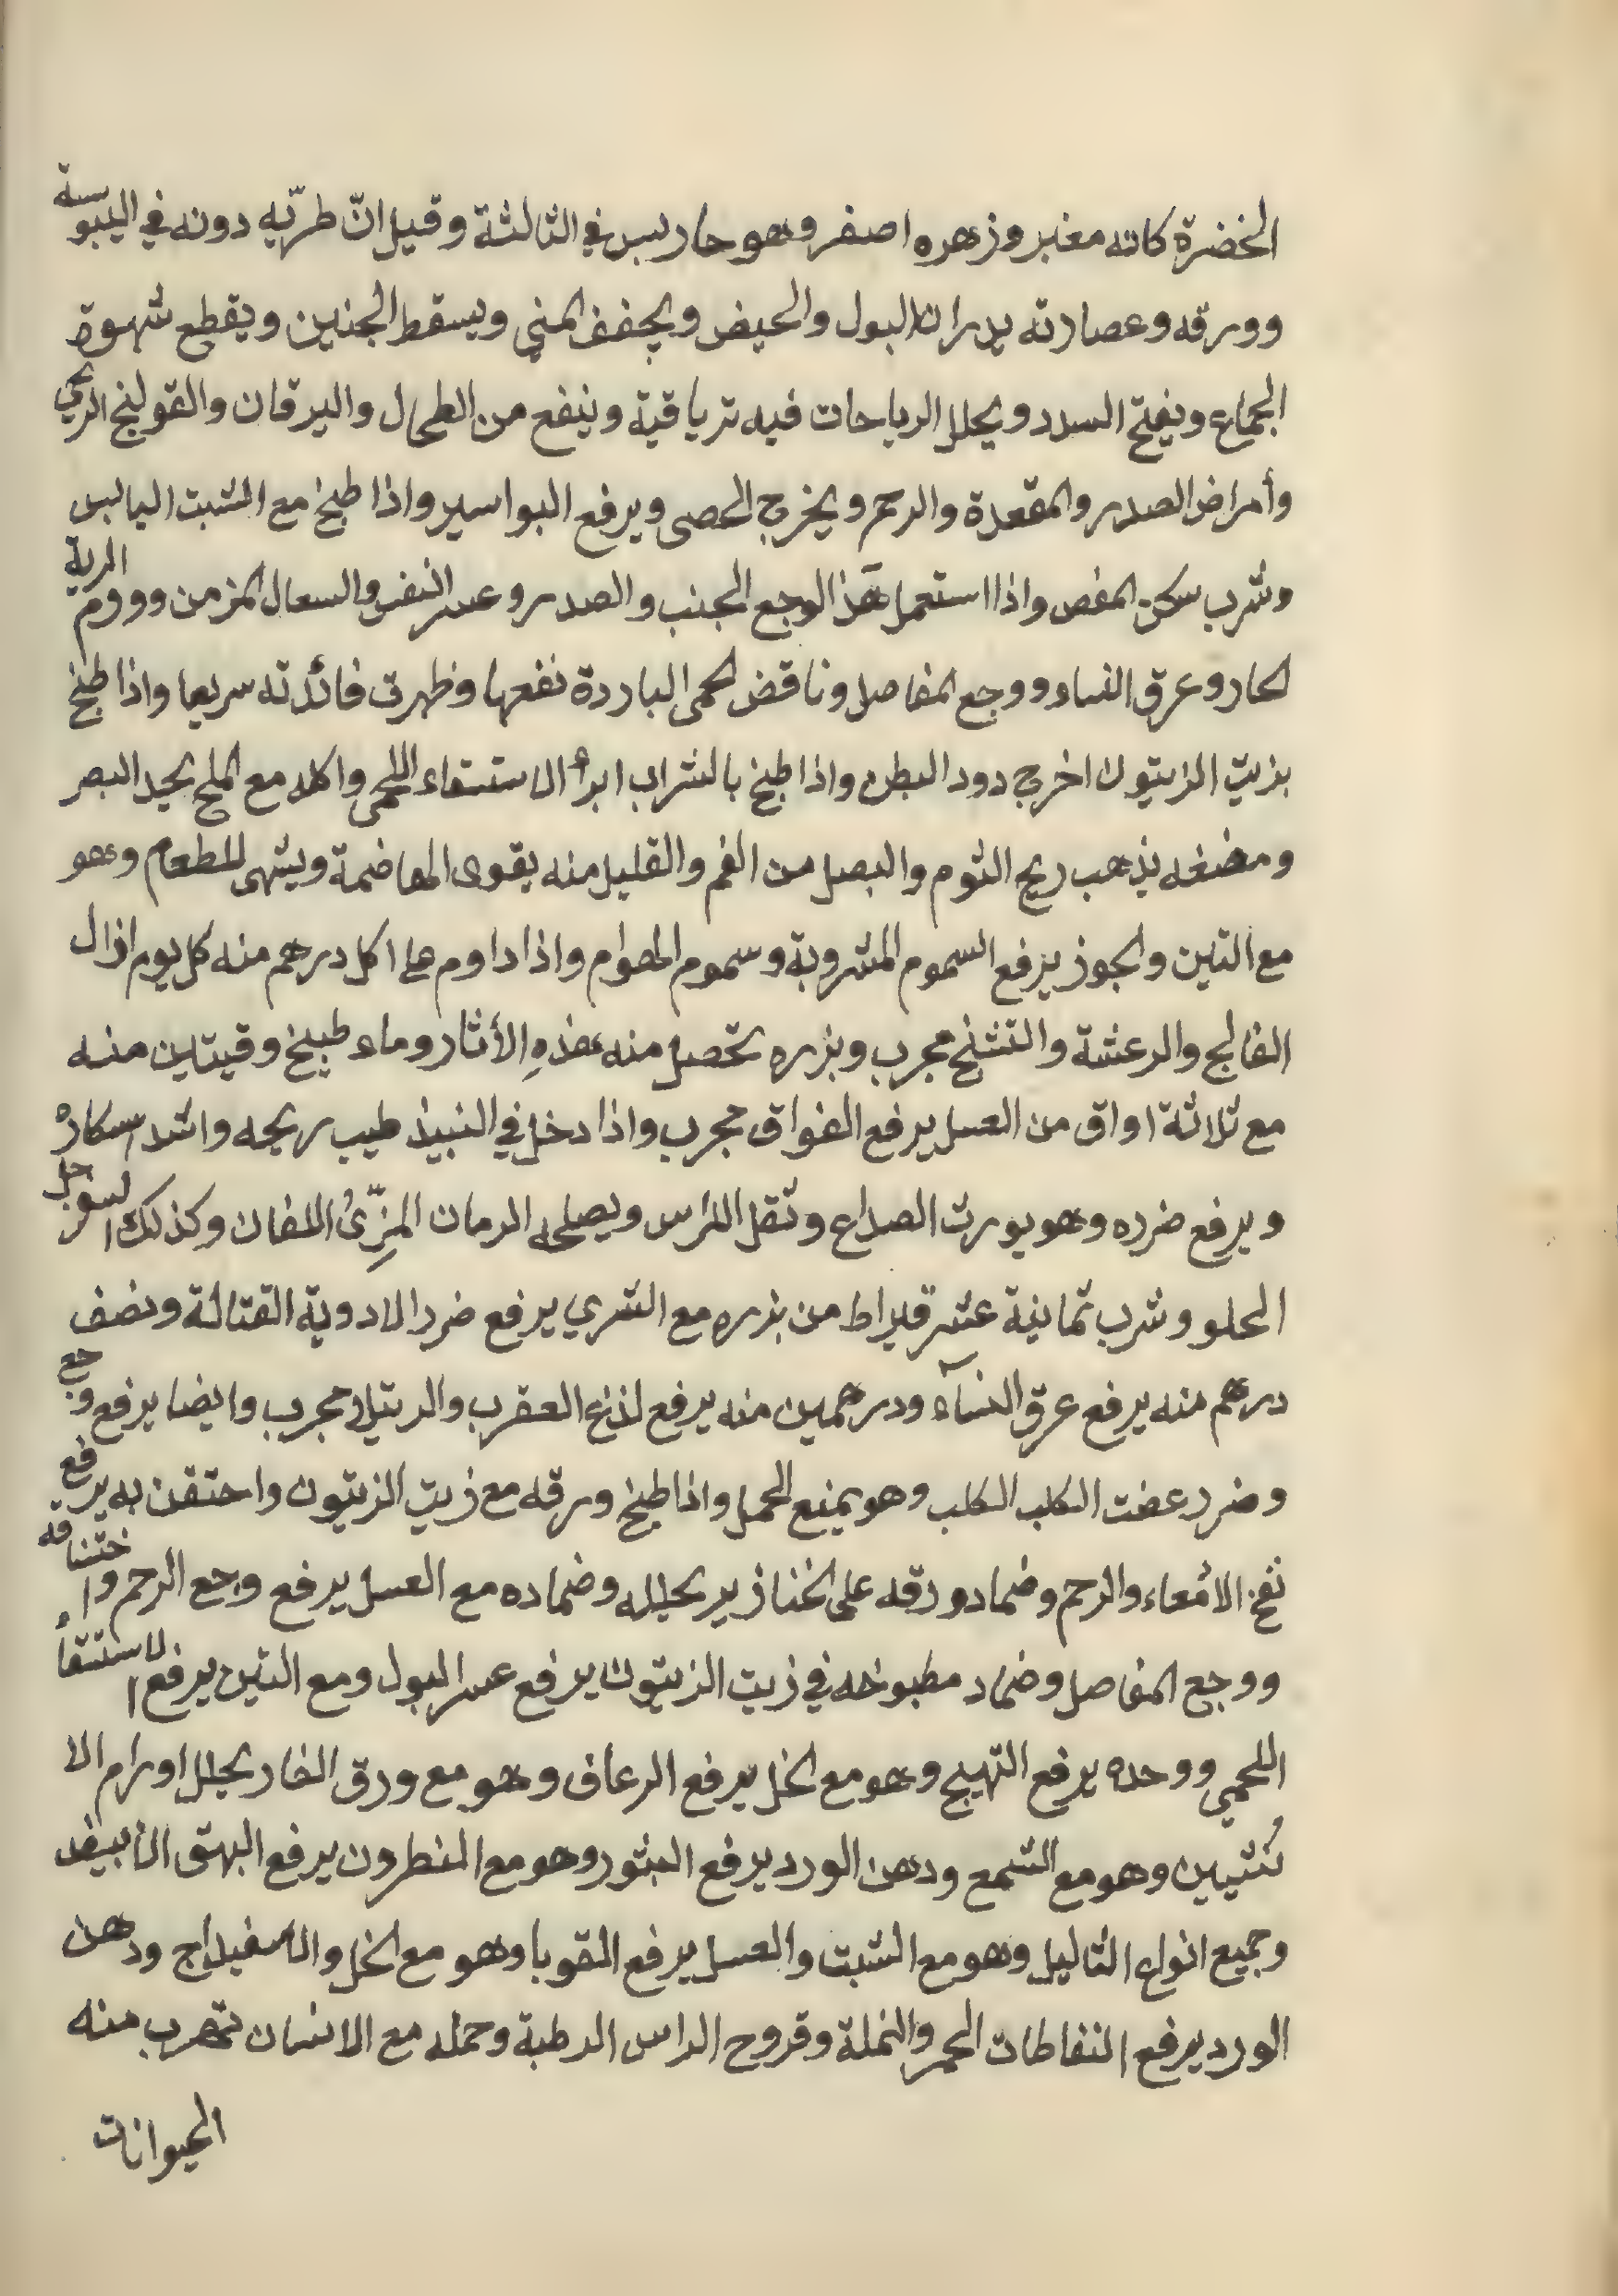 الخضرة كانه مغبر وزهره اصفر وهو حار يبس في الثالثة وقيل انّ طريّه دونه في اليبوسة
وورقه وعصارته يدران البول والحيض ويجفف المني ويسقط الجنين ويقطع شهوة
الجماع ويفتح السدد ويحلل الرياحات فيه ترياقية وينفع من الطحال واليرقان والقولنج الريحي
وأمراض الصدر والمقعدة والرحم ويخرج الحصى ويرفع البواسير واذا طبخ مع الشبت اليابس
وشرب سكن المغص واذا استعمل هذا لوجع الجنب والصدر وعسر النفس والسعال المزمن وورم الرية
الحار وعرق النساء ووجع المفاصل ونافض الحمى الباردة نفعها وظهرت فائدته سريعا واذا طبخ
بزيت الزيتون اخرج دود البطن واذا طبخ بالشراب ابرأ الاستسقاء اللحمي واكله مع الملح يحيد البصر
ومضغه يذهب ريح الثوم والبصل من الفم والقليل منه يقوى الهاضمة ويشهى للطعام وهو
مع التين والجوز يرفع السموم المشروبة وسموم الهوام واذا داوم على اكل درهم منه كل يوم ازال
الفالج والرعشة والتشنج مجرب وبزره تحصل منه هذهِ الأثار وماء طبيخ وقيتين منه
مع ثلاثة اواق من العسل يرفع الفواق مجرب واذا دخل في النبيذ طيب ريحه واشد اسكاره
ويرفع ضرره وهو يورث الصداع وثقل الراس ويصلحه الرمان المِزّئ اللفان وكذلك السفرجل
الحلو وشرب ثمانية عشر قيراط من بزره مع الشري يرفع ضرر الادوية القتالة ونصف
درهم منه يرفع عرق النسآء ودرهمين منه يرفع لذغ العقرب والرتيلا مجرب وايضا يرفع وجع
وضرر عضت الكلب الكلب وهو يمنع الحمل واذا طبخ ورقه مع زيت الزيتون واحتقن به يرفع
نفخ الامعاء والرحم وضماد ورقه على الخنازير يحلله وضماده مع العسل يرفع وجع الرحم واختناقه
ووجع المفاصل وضماد مطبوخه في زيت الزيتون يرفع عسر البول ومع التين يرفع الاستسقأ
اللحمي ووحده يرفع التهييج وهو مع الخل يرفع الرعاف وهو مع ورق الغار يحلل اورام الا
نُثيين وهو مع الشمع ودهن الورد يرفع البثور وهو مع النطرون يرفع البهق الأبيض
وجميع انواع الثاليل وهو مع الشبت والعسل يرفع القوبا وهو مع الخل والاسفيداج ودهن
الورد يرفع النفاطات الحمر والنملة وقروح الراس الرطبة وحمله مع الانسان تهرب منه
الحيوانات